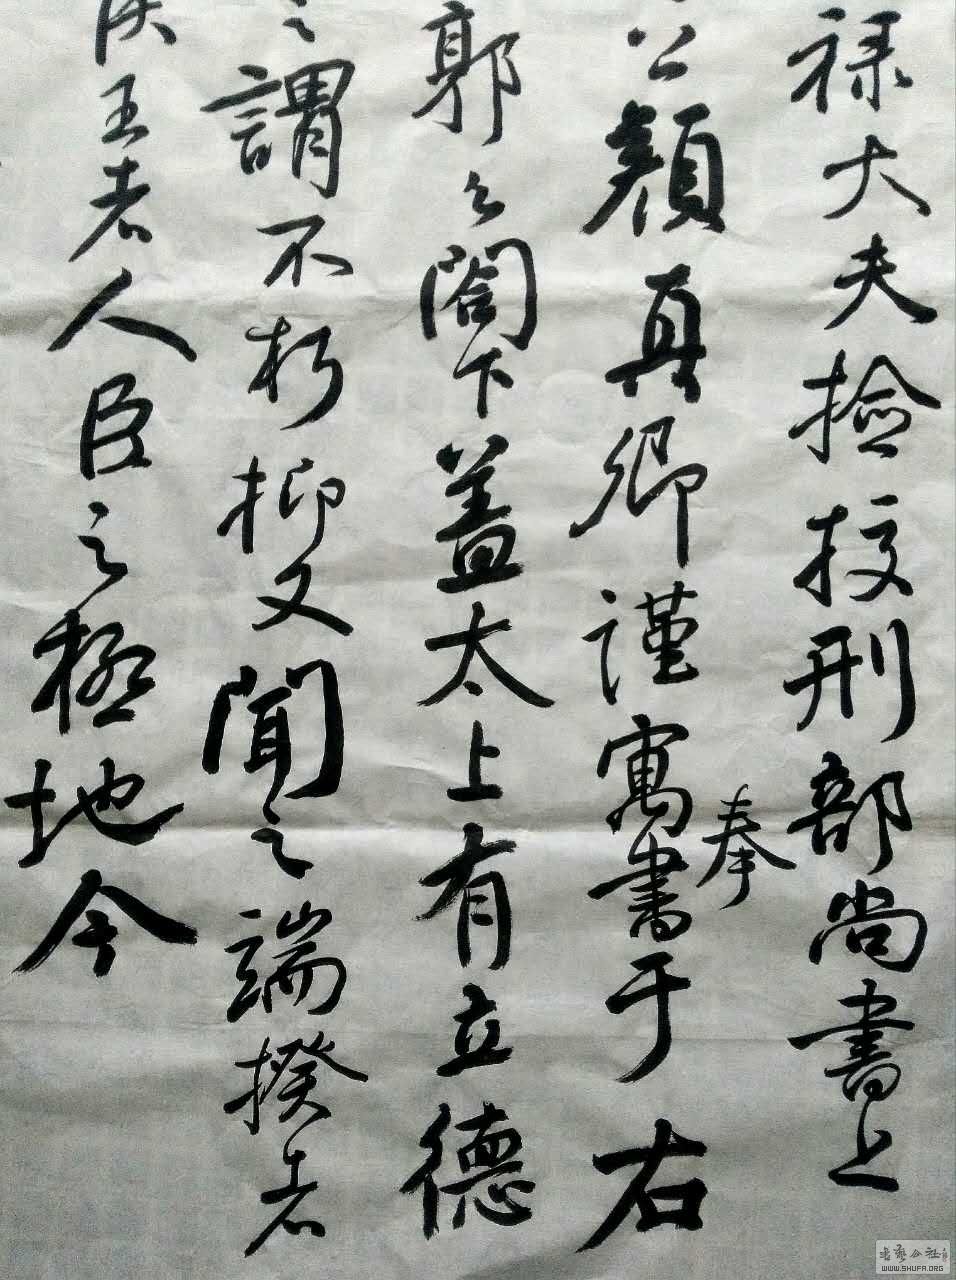 禄大夫捡挍刑部尚書上
公顔真卿謹寓書于右
奉
郭公閤下蓋太上有立德
之謂不朽抑又聞之端揆者
王者人臣之極地今
書艺公社
WWW.SHUFA.ORG